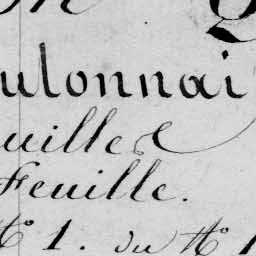 ulonnai
uilles
Feuille.
N° 1. du N° 1